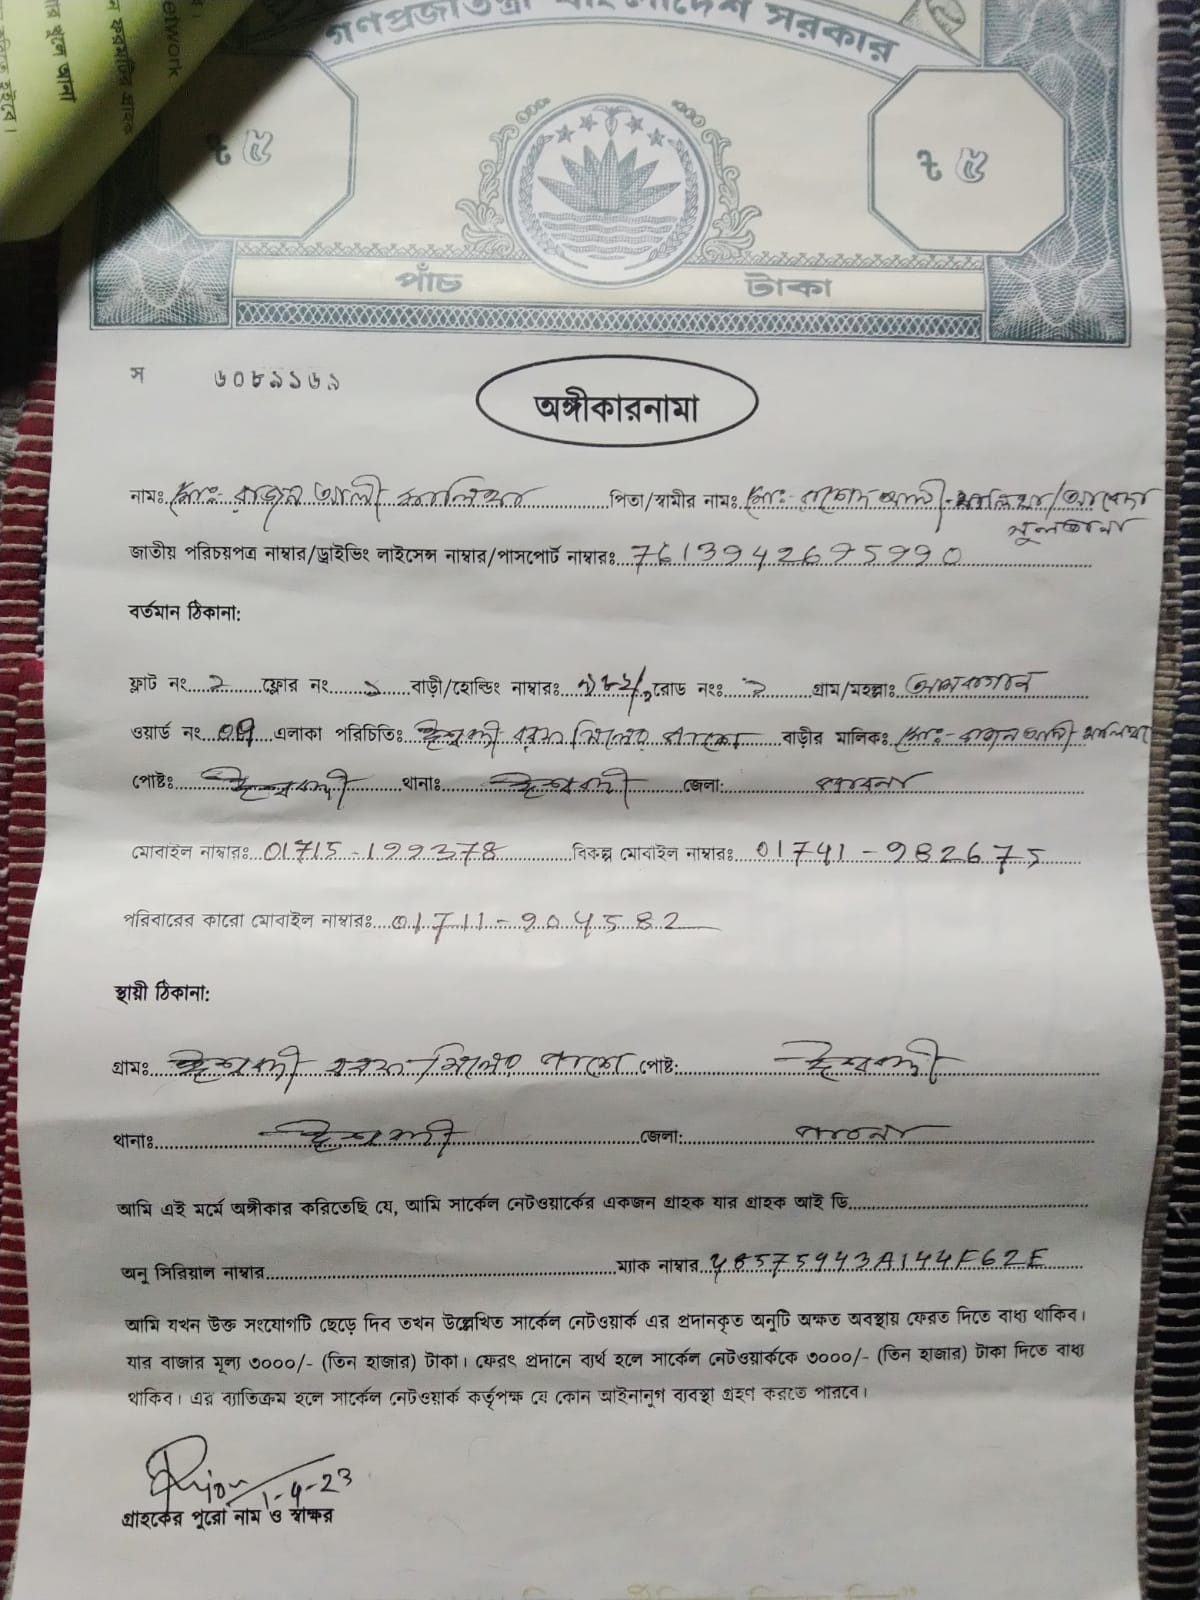 গণপ্রজাতন্ত্রী বাংলাদেশ সরকার
network
৳ ৫ ৳ ৫
পাঁচ টাকা
স ৬০৮৯১৬৯
অঙ্গীকারনামা
নামঃ মোঃ- রাজন আলী মালিথা পিতা/স্বামীর নামঃ মোঃ-
জাতীয় পরিচয়পত্র নাম্বার/ড্রাইভিং লাইসেন্স নাম্বার/পাসপোর্ট নাম্বারঃ 7613942695990
বর্তমান ঠিকানা:
ফ্লাট নং ২ ফ্লোর নং ১ বাড়ী/হোল্ডিং নাম্বারঃ রোড নংঃ ২ গ্রাম/মহল্লাঃ
ওয়ার্ড নং এলাকা পরিচিতিঃ ঈশ্বরদী মিলের পাশে বাড়ীর মালিকঃ মোঃ- রাজন আলী মালিথা
পোষ্টঃ ঈশ্বরদী থানাঃ ঈশ্বরদী জেলা: পাবনা
মোবাইল নাম্বারঃ 01715-199378 বিকল্প মোবাইল নাম্বারঃ 01741-982675
পরিবারের কারো মোবাইল নাম্বারঃ 01711-904582
স্থায়ী ঠিকানা:
গ্রামঃ ঈশ্বরদী মিলের পাশে পোষ্ট: ঈশ্বরদী
থানাঃ ঈশ্বরদী জেলা: পাবনা
আমি এই মর্মে অঙ্গীকার করিতেছি যে, আমি সার্কেল নেটওয়ার্কের একজন গ্রাহক যার গ্রাহক আই ডি
অনু সিরিয়াল নাম্বার ম্যাক নাম্বার 48575443A144F62E
আমি যখন উক্ত সংযোগটি ছেড়ে দিব তখন উল্লেখিত সার্কেল নেটওয়ার্ক এর প্রদানকৃত অনুটি অক্ষত অবস্থায় ফেরত দিতে বাধ্য থাকিব।
যার বাজার মূল্য ৩০০০/- (তিন হাজার) টাকা। ফেরৎ প্রদানে ব্যর্থ হলে সার্কেল নেটওয়ার্ককে ৩০০০/- (তিন হাজার) টাকা দিতে বাধ্য
থাকিব। এর ব্যতিক্রম হলে সার্কেল নেটওয়ার্ক কর্তৃপক্ষ যে কোন আইনানুগ ব্যবস্থা গ্রহণ করতে পারবে।
1-4-23
গ্রাহকের পুরো নাম ও স্বাক্ষর